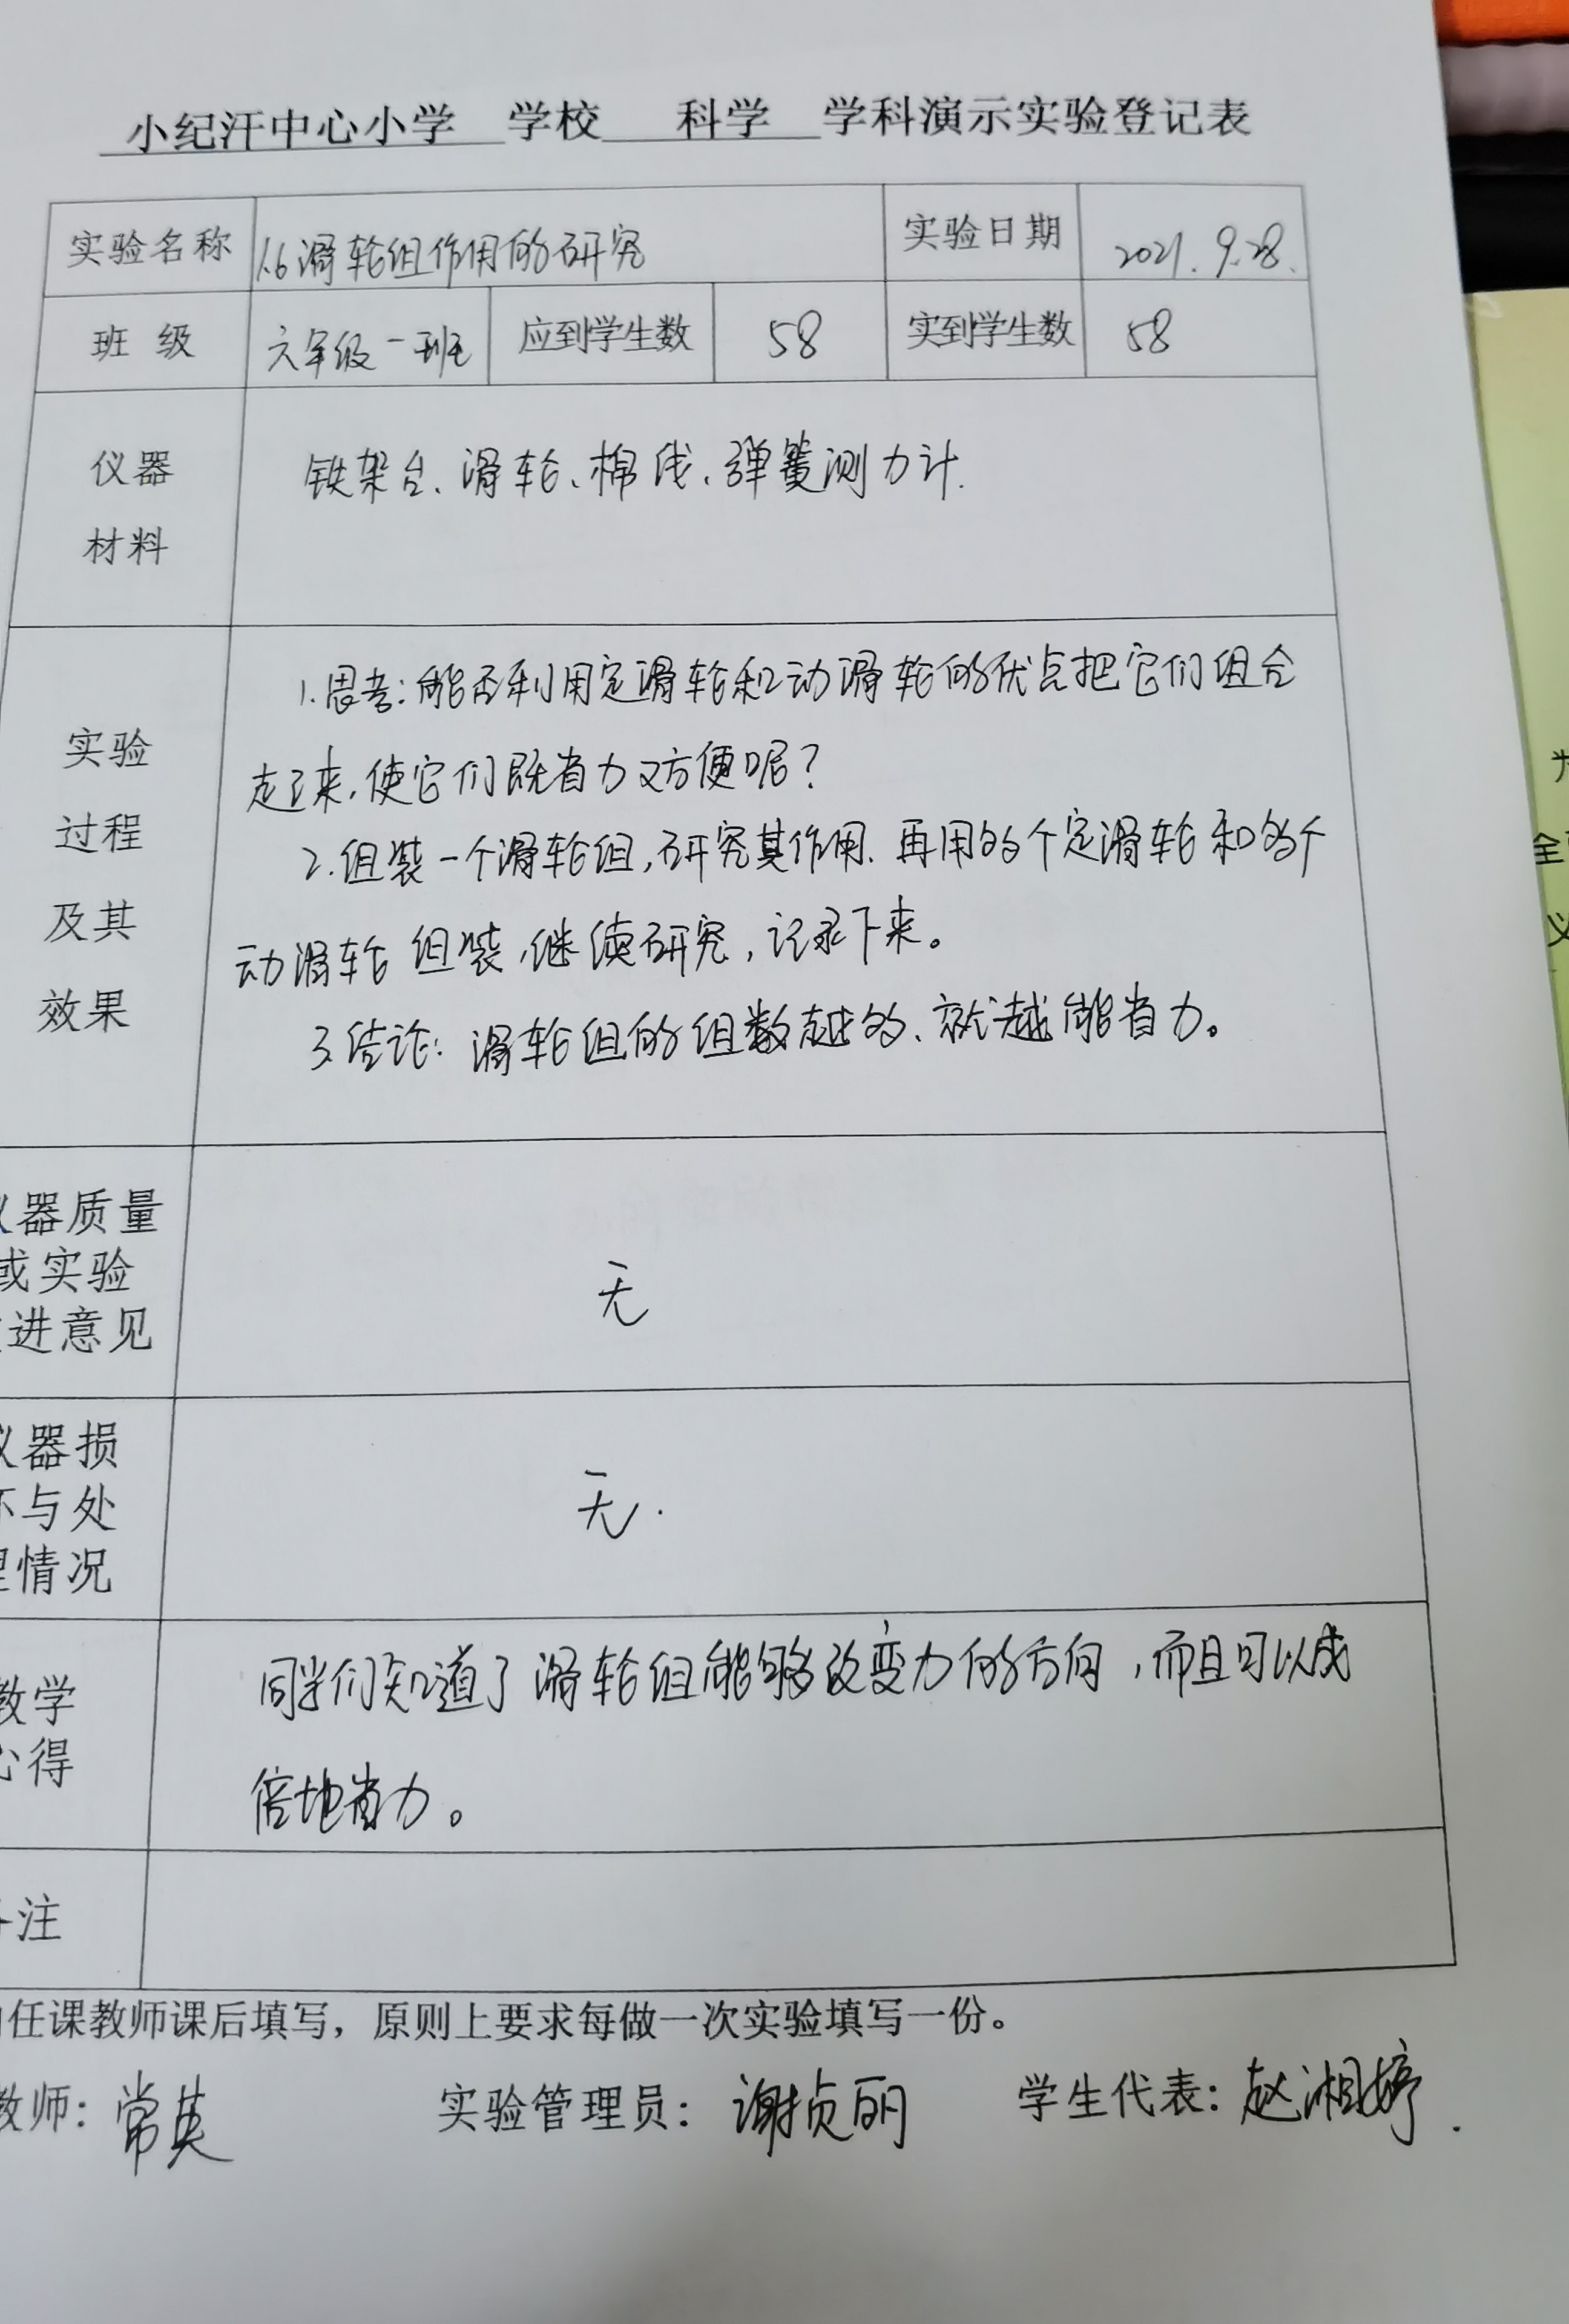 小纪汗中心小学 学校 科学 学科演示实验登记表
实验名称 1.6滑轮组作用的研究 实验日期 2021.9.28.
班 级 六年级一班 应到学生数 58 实到学生数 58
仪器
材料
铁架台、滑轮、棉线、弹簧测力计.
实验
过程
及其
效果
1.思考:能否利用定滑轮和动滑轮的优点把它们组合
起来,使它们既省力又方便呢?
2.组装一个滑轮组,研究其作用.再用多个定滑轮和多个
动滑轮组装,继续研究,记录下来。
3.结论:滑轮组的组数越多、就越能省力。
仪器质量
或实验
改进意见
无
仪器损
坏与处
理情况
无.
教学
心得
同学们知道了滑轮组能够改变力的方向,而且可以成
倍地省力。
备注
由任课教师课后填写,原则上要求每做一次实验填写一份。
教师:常英 实验管理员:谢贞丽 学生代表:赵湘婷.
全
义